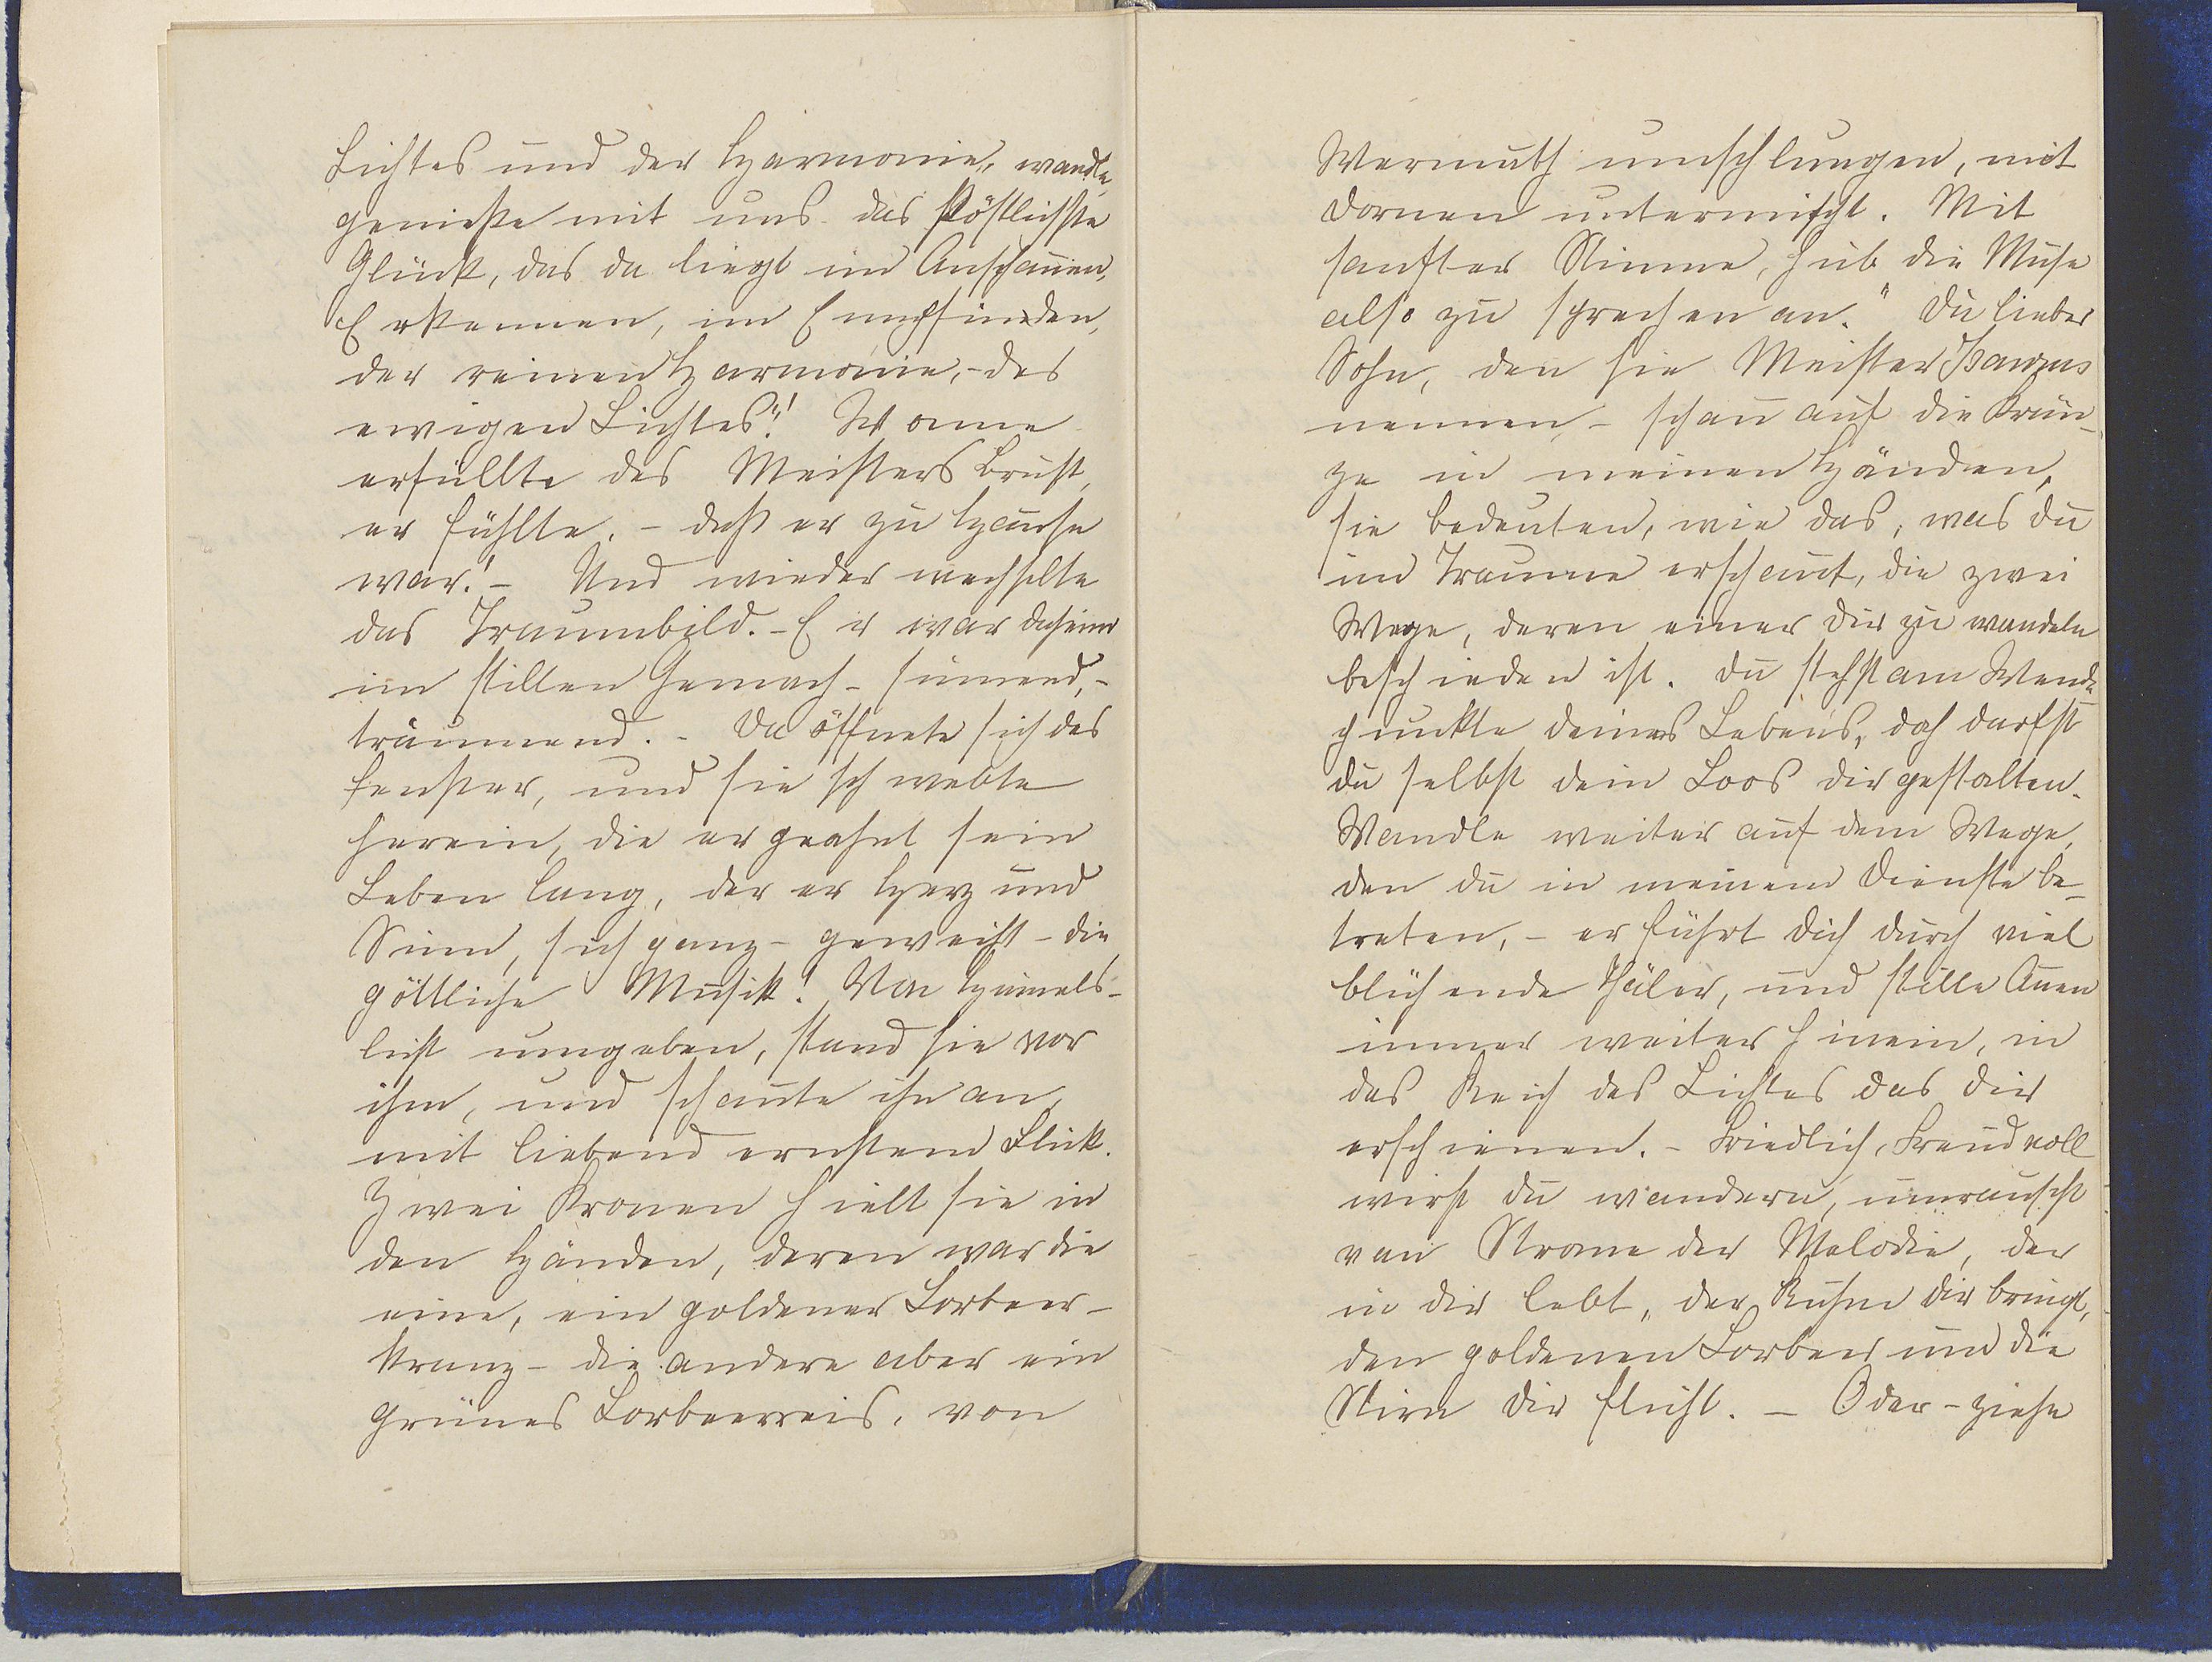 Lichtes und der Harmonie, wandle,
genieße mit uns das köstlichste
Glück, das da liegt im Anschauen,
Erkennen, im Empfinden,
der reinen Harmonie, - des
ewigen Lichtes"! Wonne
erfüllte des Meisters Brust,
er fühlte, - daß er zu Hause
war! - Und wieder wechselte
das Traumbild. - Er war daheim
im stillen Gemach - sinnend, -
träumend. - Da öffnete sich das
Fenster, und sie schwebte
herein, die er geahnt sein
Leben lang, der er Herz und
Sinn, sich ganz - geweiht - die
göttliche Musik! Von Himmels-
licht umgeben, stand sie vor
ihm, und schaute ihn an,
mit liebend ernstem Blick.
Zwei Kronen hielt sie in
den Händen, deren war die
eine, ein goldener Lorbeer-
kranz - die andere aber ein
grünes Lorbeerreis, von
Wermuth umschlungen, mit
Dornen untermischt. Mit
sanfter Stimme, hub die Muse
also zu sprechen an. " Du lieber
Sohn, den sie Meister
nennen, - schau auf die Krän-
ze in meinen Händen,
sie bedeuten, wie das, was du
im Traume erschaut, die zwei
Wege, deren einer dir zu wandeln
beschieden ist. Du stehst am Wende-
punkte deines Lebens, doch darfst
du selbst dein Loos dir gestalten.
Wandle weiter auf dem Wege,
den du in meinem Dienste be-
treten, - er führt dich durch viel
blühende Thäler, und stille Auen
immer weiter hinein, in
das Reich des Lichtes das dir
erschienen. - Friedlich, Freudvoll
wirst du wandern, umrauscht
von Strome der Melodie, der
in dir lebt, der Ruhm dir bringt,
den goldenen Lorbeer um die
Stirn dir flicht. - Oder - ziehe